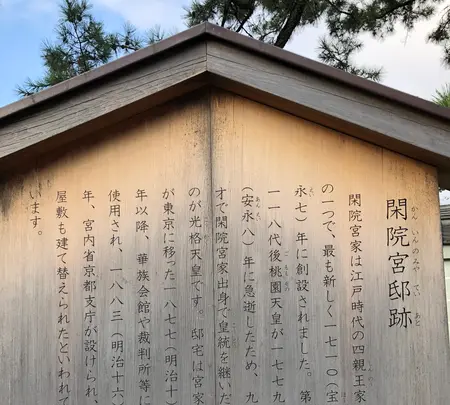 かんいんのみやていあと
閑院宮邸跡
閑院宮家は江戸時代の四親王家
の一つで、最も新しく一七一〇(宝
永七)年に創設されました。第
一一八代後桃園天皇が一七七九
(安永八)年に急逝したため、九
才で閑院宮家出身で皇統を継いだ
のが光格天皇です。邸宅は宮家
が東京に移った一八七七(明治十
年以降、華族会館や裁判所等に
使用され、一八八三(明治十六
年、宮内省京都支庁が設けられ、
屋敷も建て替えられたといわれて
います。